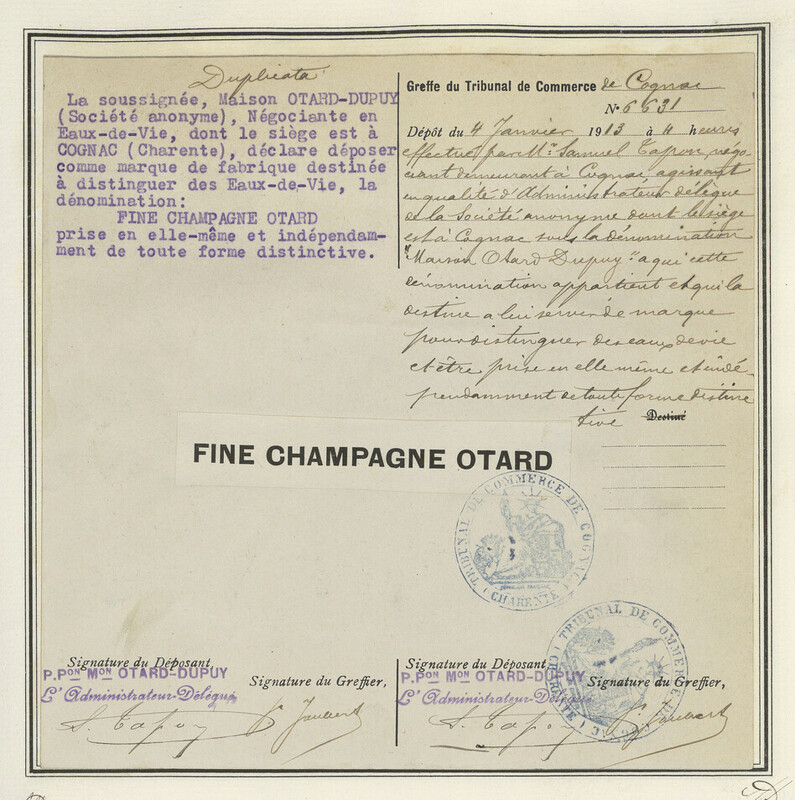 Duplicata
La soussignée, Maison OTARD-DUPUY
(Société anonyme), Négociante en
Eaux-de-Vie, dont le siège est à
COGNAC (Charente), déclare déposer
comme marque de fabrique destinée
à distinguer des Eaux-de-Vie, la
dénomination:
FINE CHAMPAGNE OTARD
prise en elle-même et indépendam-
ment de toute forme distinctive.
Greffe du Tribunal de Commerce de Cognac
N° 6631
Dépôt du 4 Janvier 1913 à 4 heures
effectué par Mr. Samuel Tapon, négo-
ciant demeurant à Cognac, agissant
en qualité d'Administrateur délégué
de la Société anonyme dont le siège
est à Cognac sous la dénomination
"Maison Otard Dupuy" a qui cette
dénomination appartient et qui la
destine a lui servir de marque
pour distinguer des eaux de vie
et être prise en elle même et indé-
pendamment de toute forme distinc
tive Destiné
FINE CHAMPAGNE OTARD
TRIBUNAL DE COMMERCE DE COGNAC
(CHARENTE)
TRIBUNAL DE COMMERCE DE COGNAC
(CHARENTE)
Signature du Déposant,
P.Pon Mon OTARD-DUPUY
L'Administrateur-Délégué
Signature du Greffier,
S. Tapon
Signature du Déposant,
P.Pon Mon OTARD-DUPUY
L'Administrateur-Délégué
Signature du Greffier,
S. Tapon